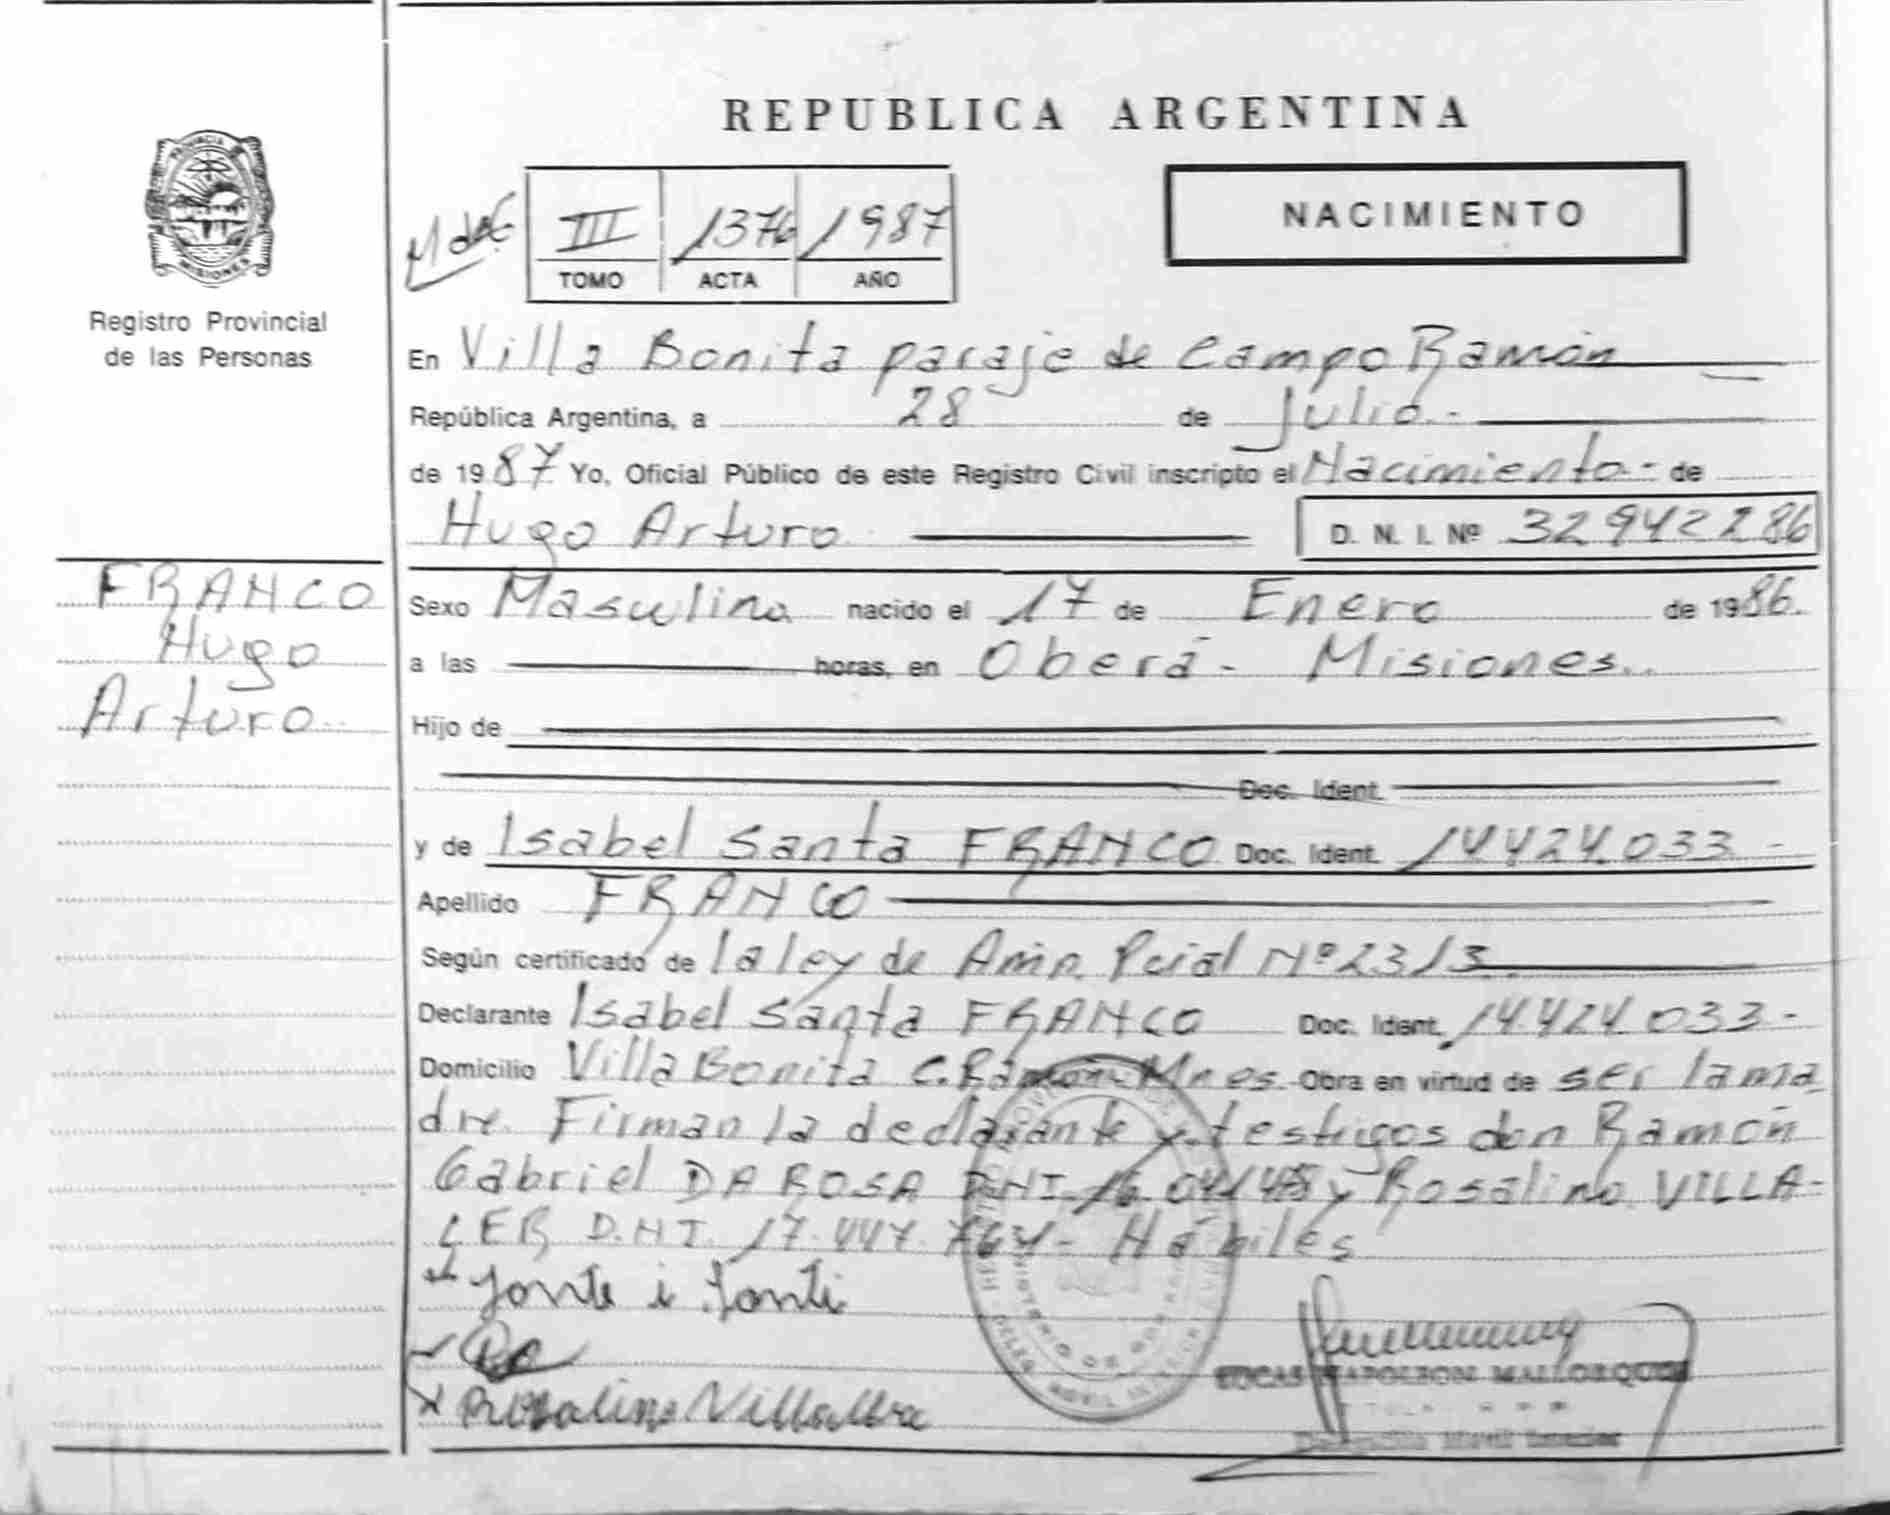 REPUBLICA ARGENTINA
PROVINCIA DE
MISIONES
Registro Provincial
de las Personas
III 1376 1987
TOMO ACTA AÑO
NACIMIENTO
En Villa Bonita paraje de Campo Ramón
República Argentina, a 28 de Julio.-
de 1987 Yo, Oficial Público de este Registro Civil inscripto el Nacimiento.- de
Hugo Arturo D. N. I. Nº 32942286
FRANCO
Hugo
Arturo
Sexo Masculino nacido el 17 de Enero de 1986.
a las horas, en Oberá- Misiones.
Hijo de
Doc. Ident.
y de Isabel Santa FRANCO Doc. Ident. 14.424.033.-
Apellido FRANCO
Según certificado de la ley de Amn. Pcial Nº 2313.
Declarante Isabel Santa FRANCO Doc. Ident. 14.424.033.-
Domicilio Villa Bonita C. Ramón Mnes. Obra en virtud de ser la ma
dre. Firman la declarante y testigos don Ramón
Gabriel DA ROSA D.N.I. y Rosalino VILLA-
D.N.I. 17.447.764- Hábiles
Rosalino Villalba
LUCAS NAPOLEON MALLORQUIN